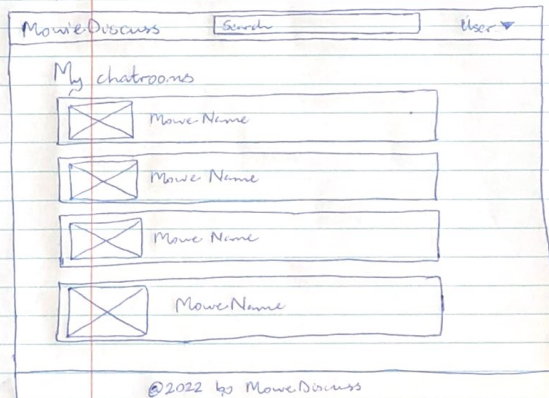 MovieDiscuss Search User
My chatrooms
Movie Name
Movie Name
Movie Name
Movie Name
@2022 by MovieDiscuss